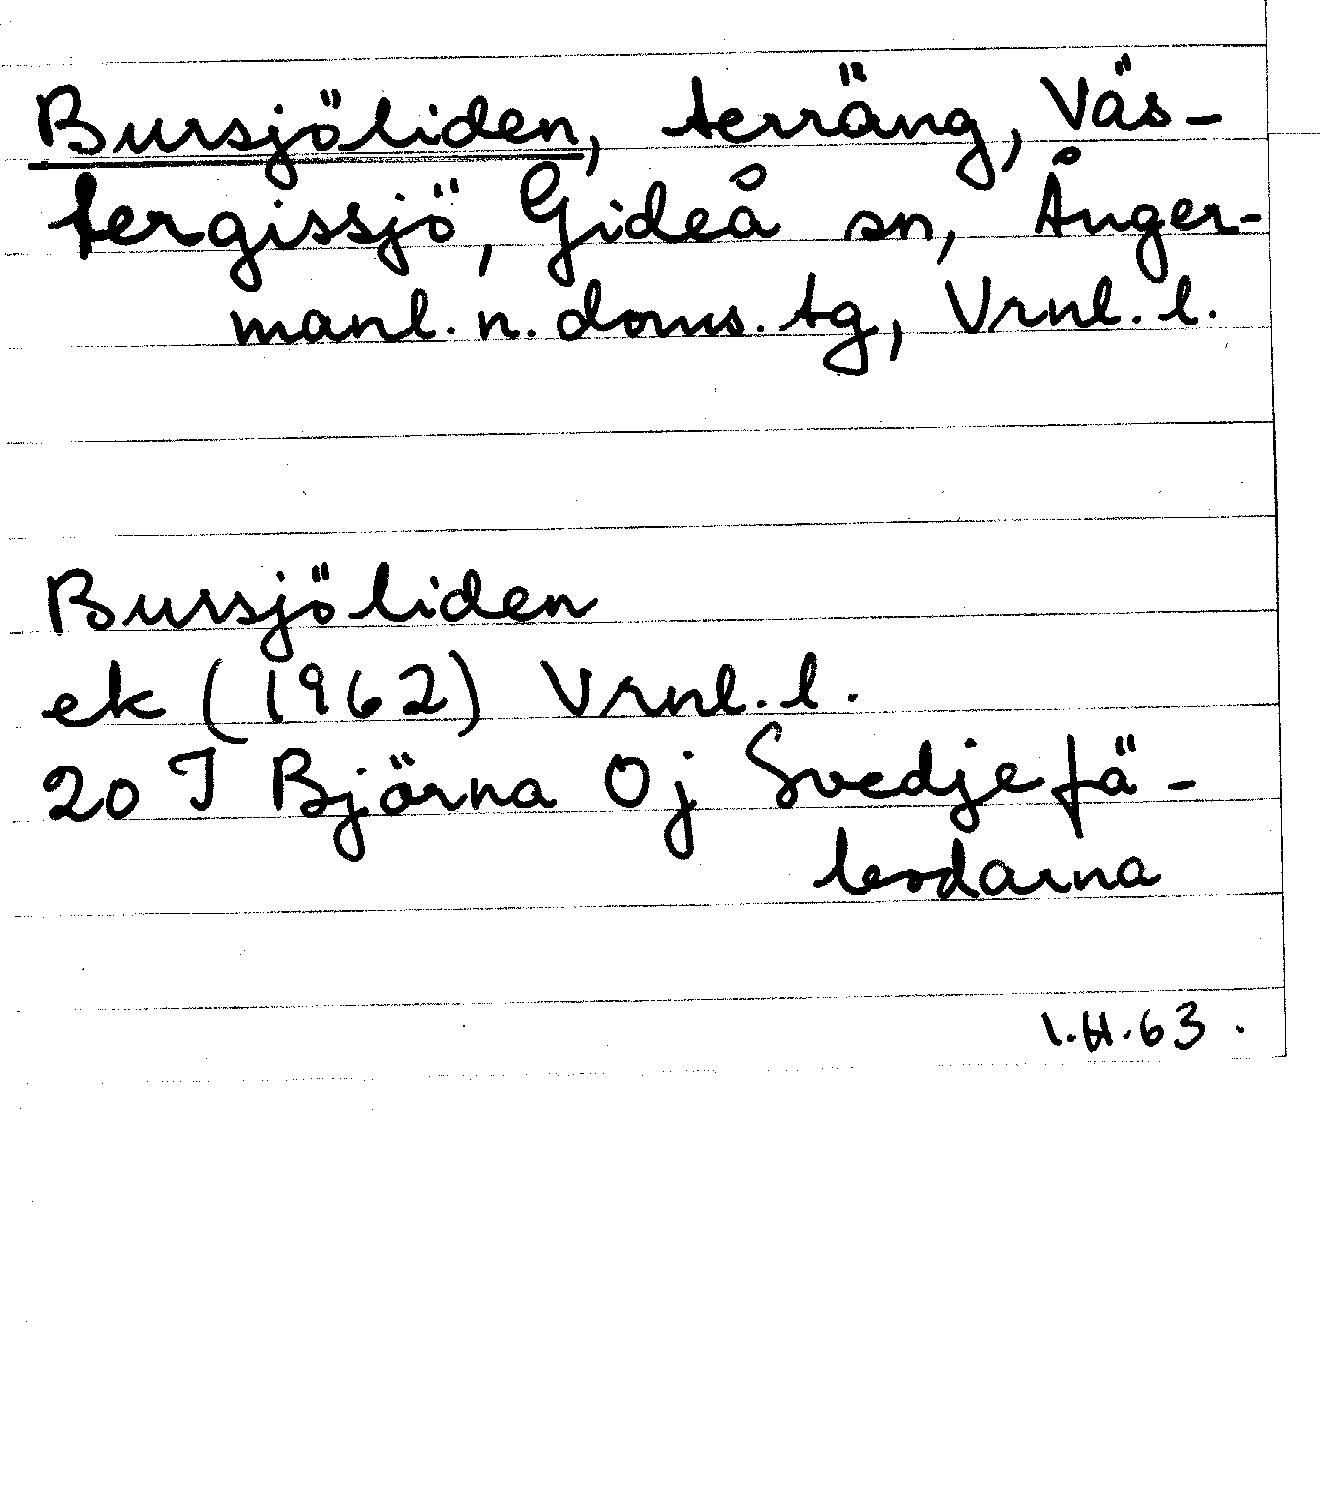 Bursjöliden, terräng, Väs-
tergissjö, Gideå sn, Ånger-
manl. n. doms. tg, Vrnl. l.
Bursjöliden
ek (1962) Vrnl. l.
20 J Björna Oj Svedjefä-
bodarna
I.H.63.